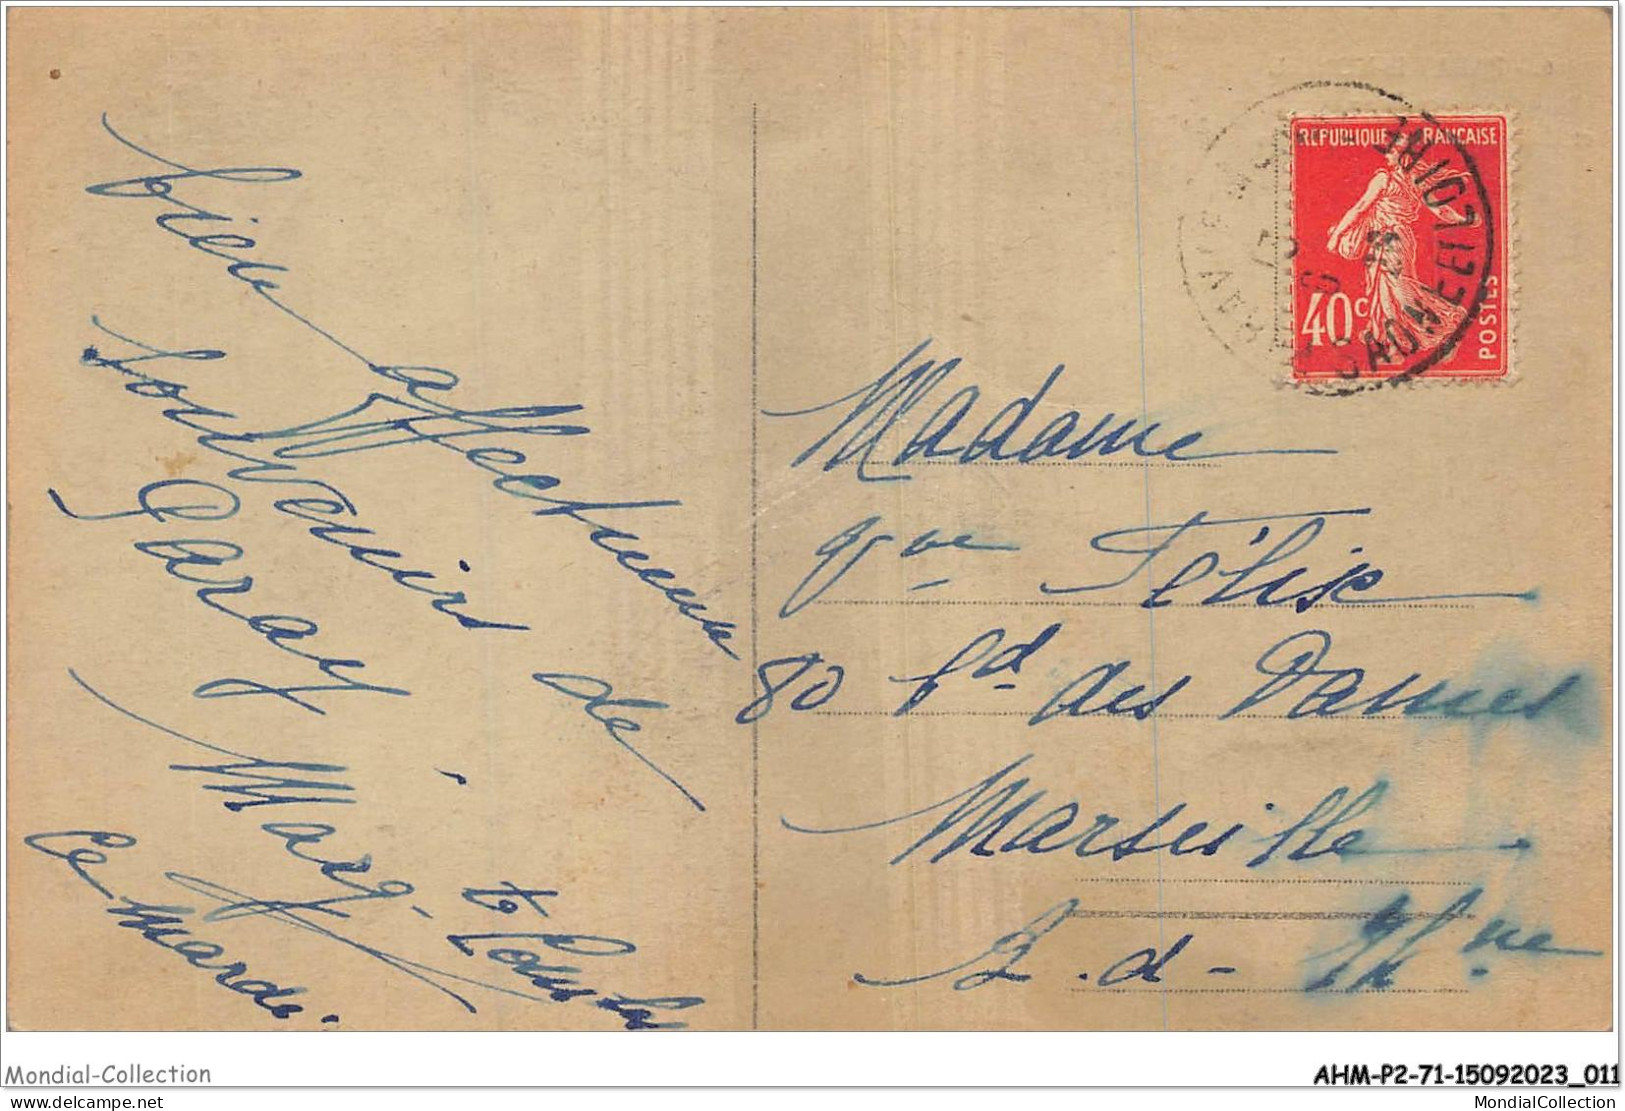 bien affectueux
souvenirs de
Paray.
Marg.
Ce mardi.
RÉPUBLIQUE FRANÇAISE
40c
POSTES
SAONE ET LOIRE
Madame
Vve Félix
80 bd des Dames
Marseille
B.-d-Rh.ne
Mondial-Collection
AHM-P2-71-15092023_011
www.delcampe.net
MondialCollection